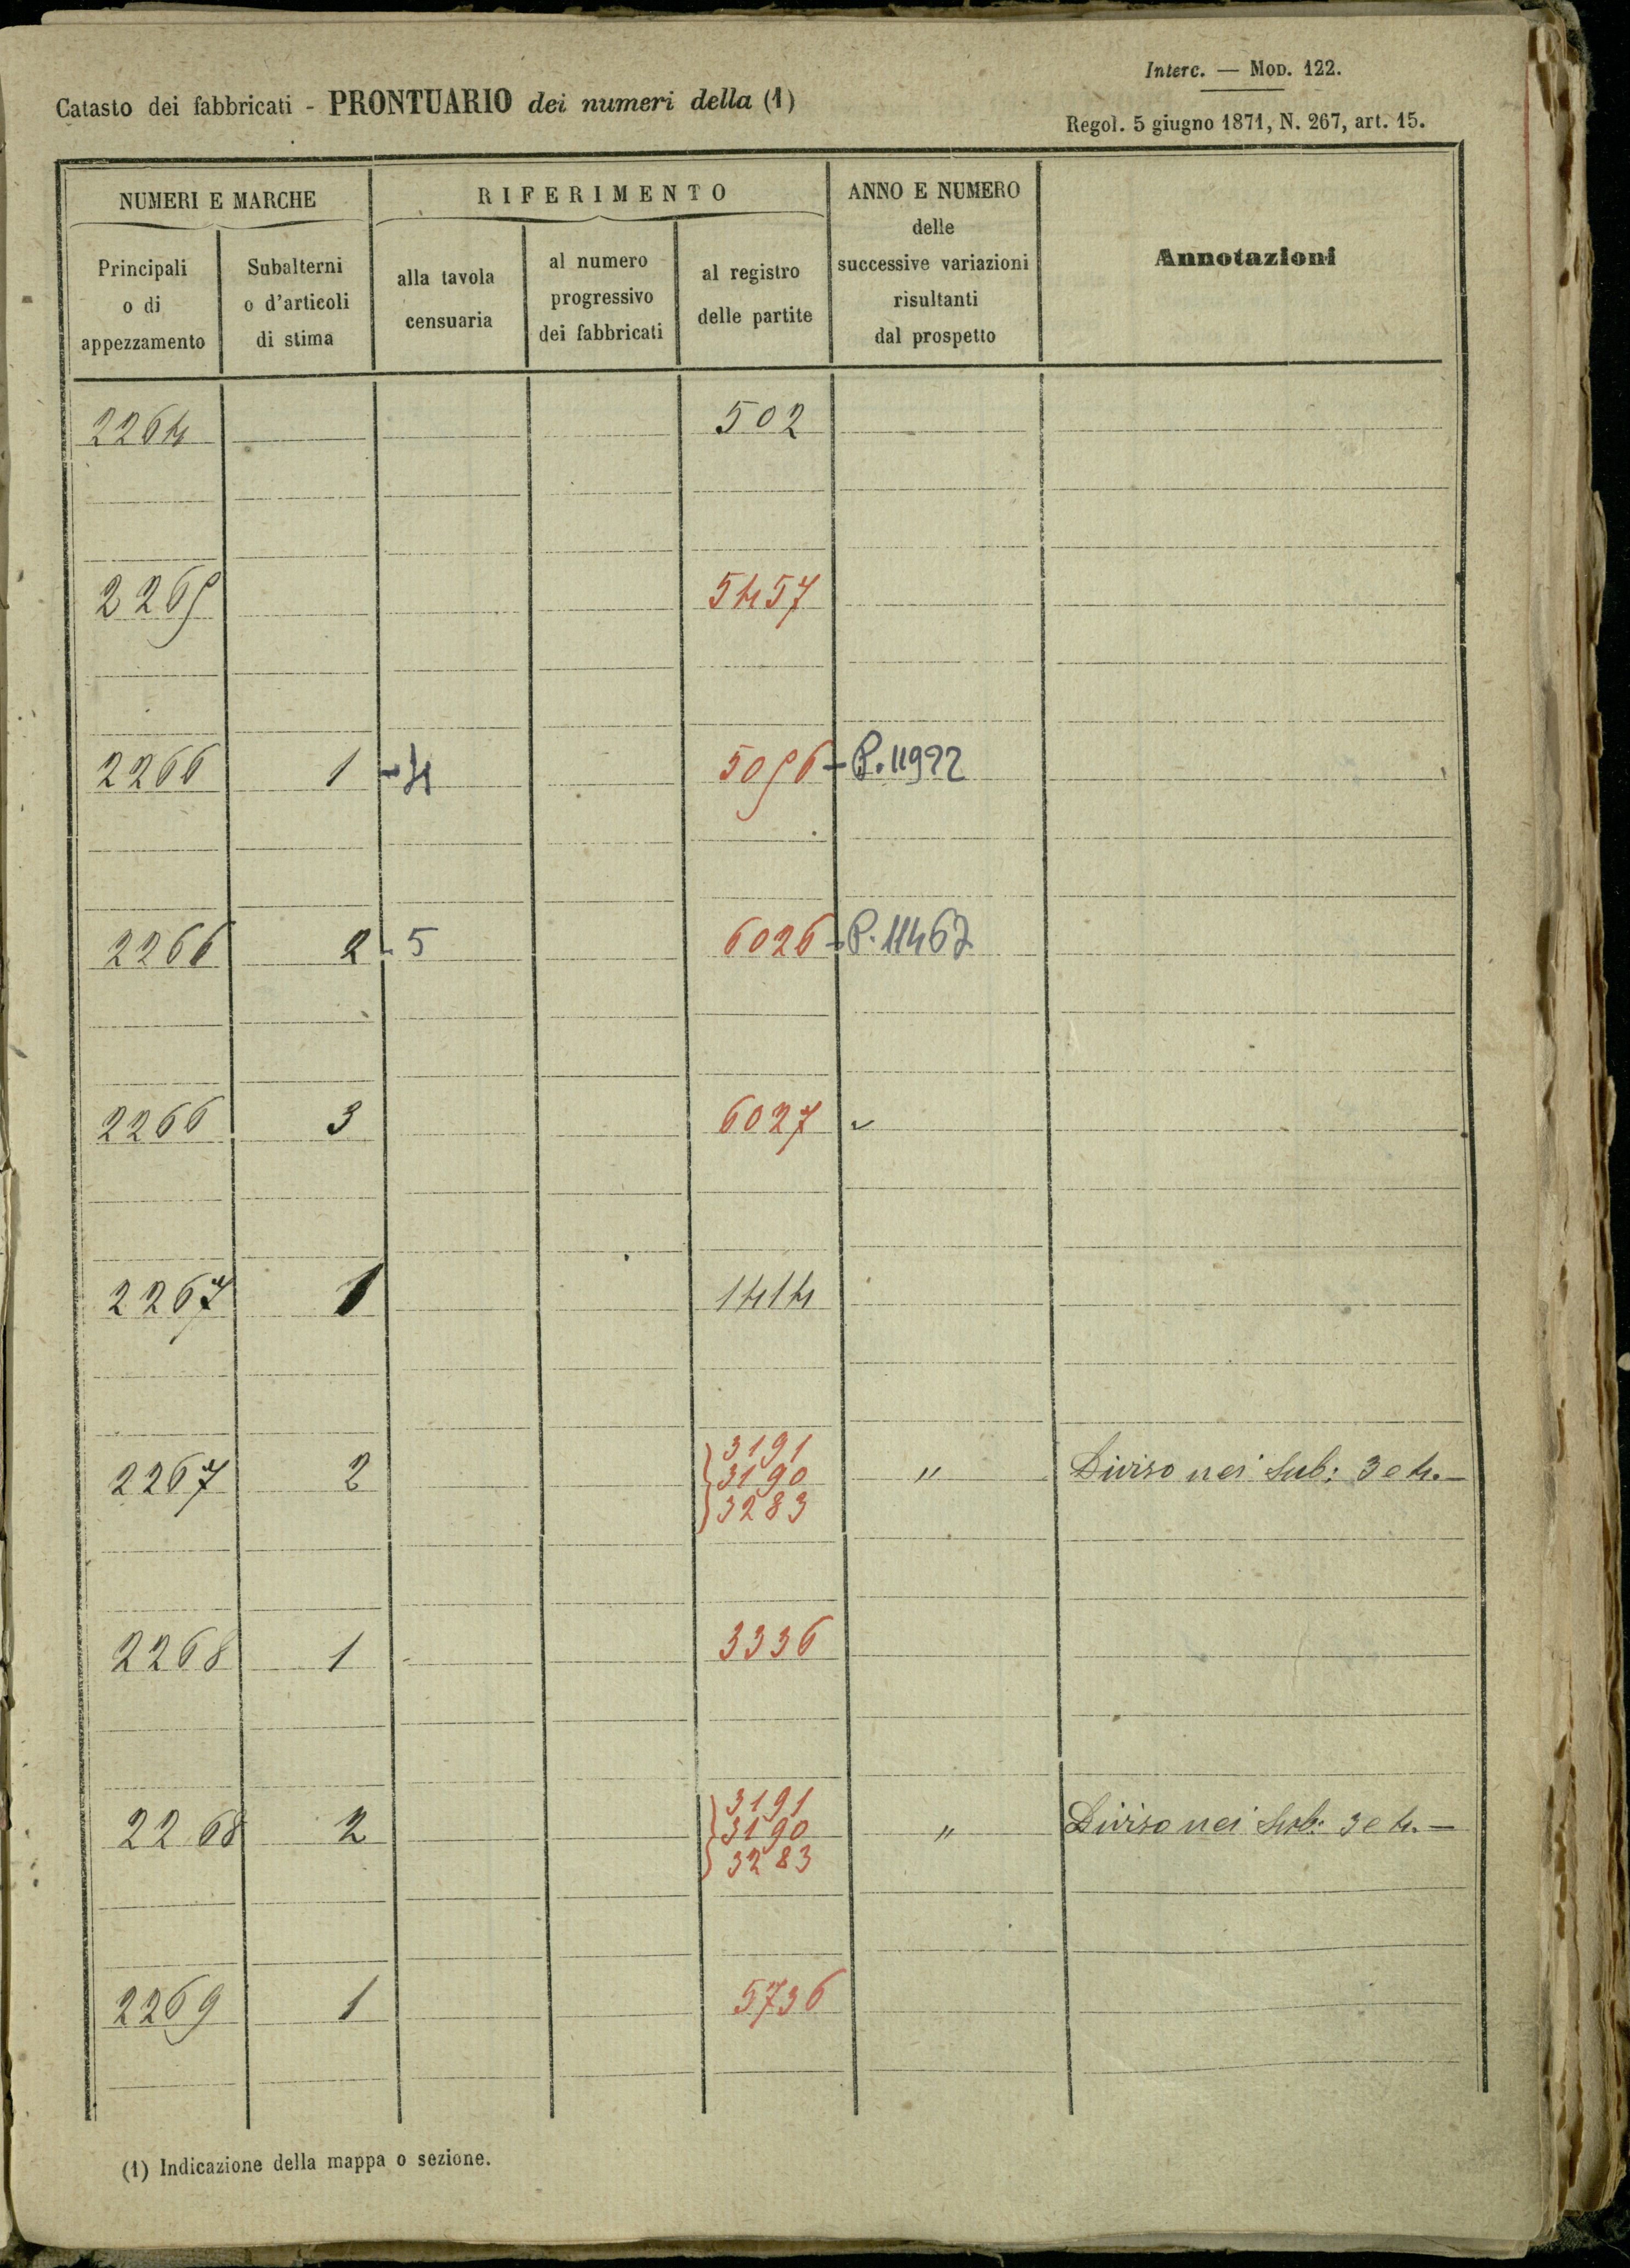 Interc. — MOD. 122.
Catasto dei fabbricati - PRONTUARIO dei numeri della (1)
Regol. 5 giugno 1871, N. 267, art. 15.
NUMERI E MARCHE
RIFERIMENTO
ANNO E NUMERO
delle
successive variazioni
risultanti
dal prospetto
Annotazioni
Principali
o di
appezzamento
Subalterni
o d'articoli
di stima
alla tavola
censuaria
al numero
progressivo
dei fabbricati
al registro
delle partite
2264 502
2265 5457
2266 1 - 4 5056 - P. 11922
2266 2 - 5 6026 - P. 11467
2266 3 6027
2267 1 1414
3191
2267 2 3190 " Diviso nei sub: 3 e 4. —
3283
2268 1 3336
3191
2268 2 3190 " Diviso nei sub: 3 e 4. —
3283
2269 1 5736
(1) Indicazione della mappa o sezione.